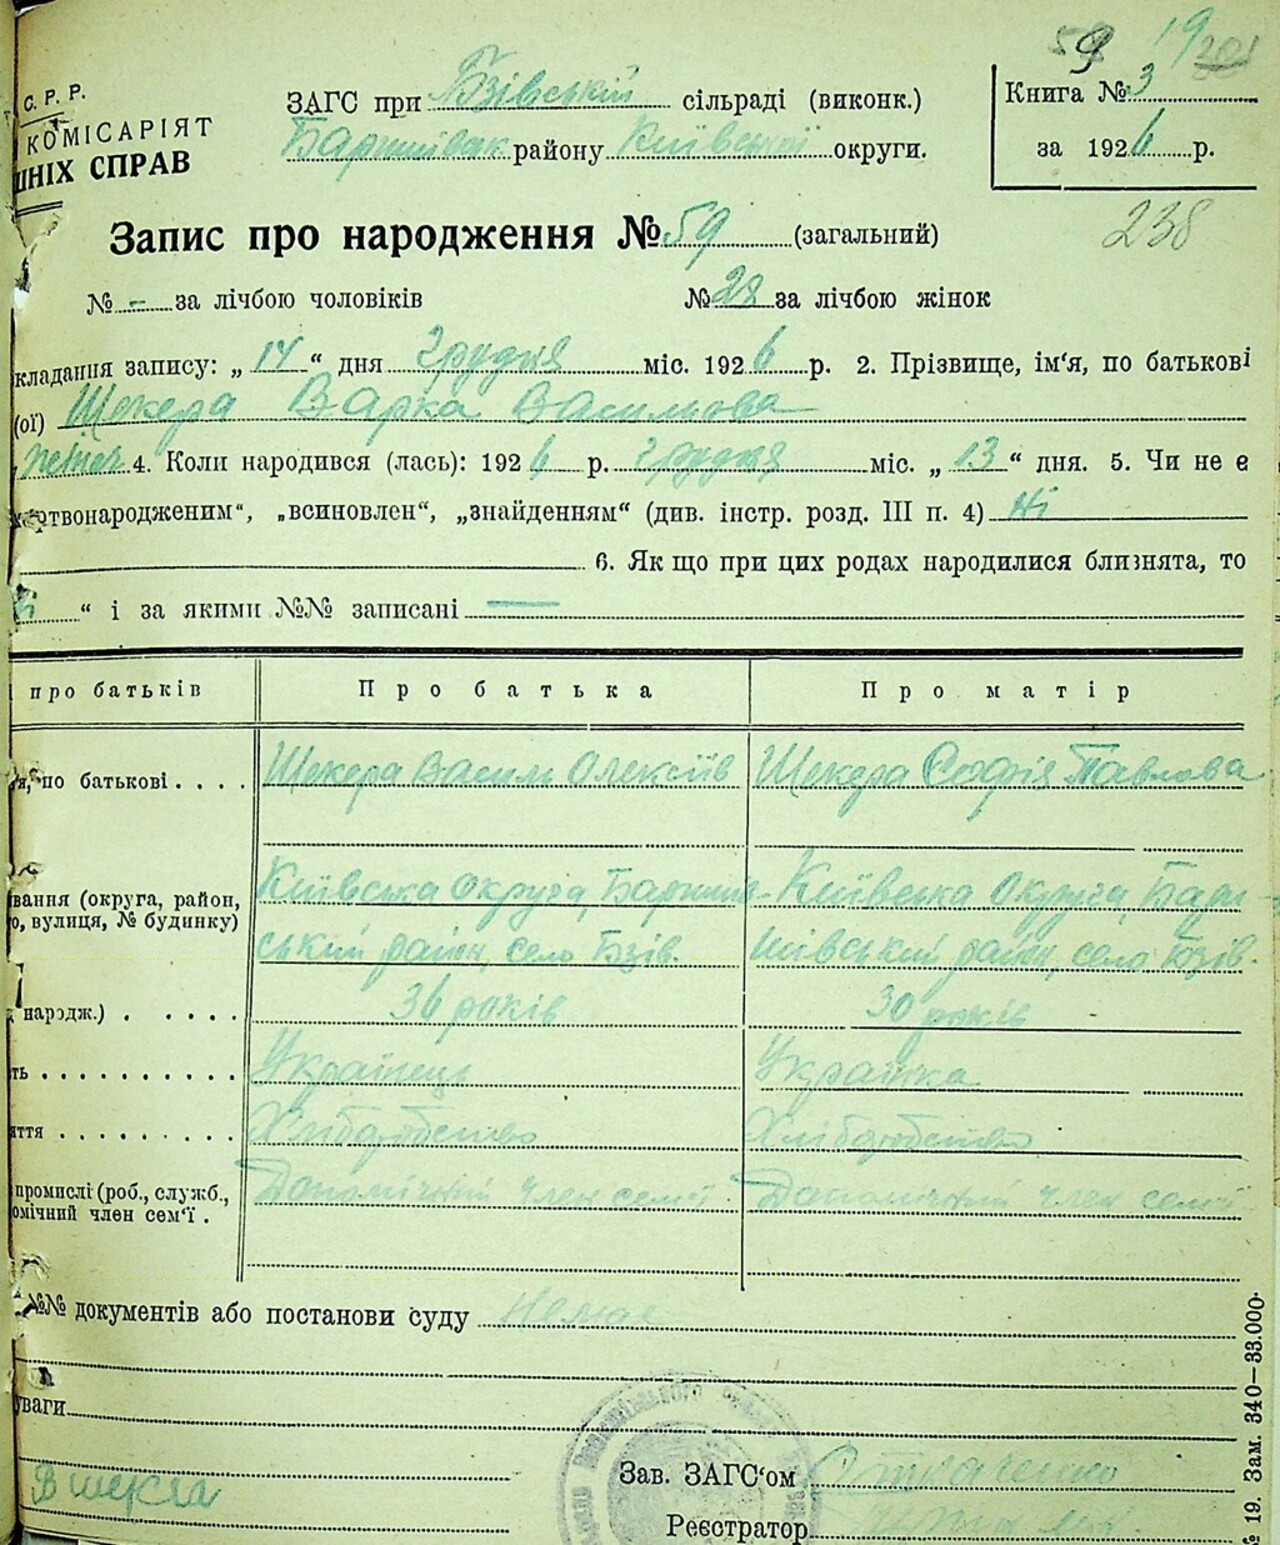 59 19 201
С. Р. Р.
КОМІСАРІЯТ
ШНІХ СПРАВ
ЗАГС при Бзівській сільраді (виконк.)
Баришівськ району Київської округи.
Книга № 3
за 1926 р.
Запис про народження № 59 (загальний)
238
№ - за лічбою чоловіків № 28 за лічбою жінок
кладання запису: „ 14 “ дня грудня міс. 1926 р. 2. Прізвище, ім'я, по батькові
(ої) Щекера Варка Васильова
4. Коли народився (лась): 1926 р. грудня міс. „ 13 “ дня. 5. Чи не є
ертвонародженим“, „всиновлен“, „знайденням“ (див. інстр. розд. III п. 4) Ні
6. Як що при цих родах народилися близнята, то
“ і за якими №№ записані —
про батьків Про батька Про матір
я, по батькові . . . . Щекера Василь Олексіїв Щекера Софія Павлова
вання (округа, район, Київська округа, Баришів- Київська округа, Бари-
о, вулиця, № будинку) ський район, село Бзів. шівський район, село Бзів.
народж.) . . . . . 36 років 30 років
ть . . . . . . . . . . Українець Українка
яття . . . . . . . . . Хліборобство Хліборобство
промислі (роб., служб., Допомічний член семʼї. Допомічний член семʼї
омічний член сем'ї .
№№ документів або постанови суду Немає
уваги
Зав. ЗАГС'ом Ткаченко
В щекера
Реєстратор
№ 19. Зам. 340—33.000.